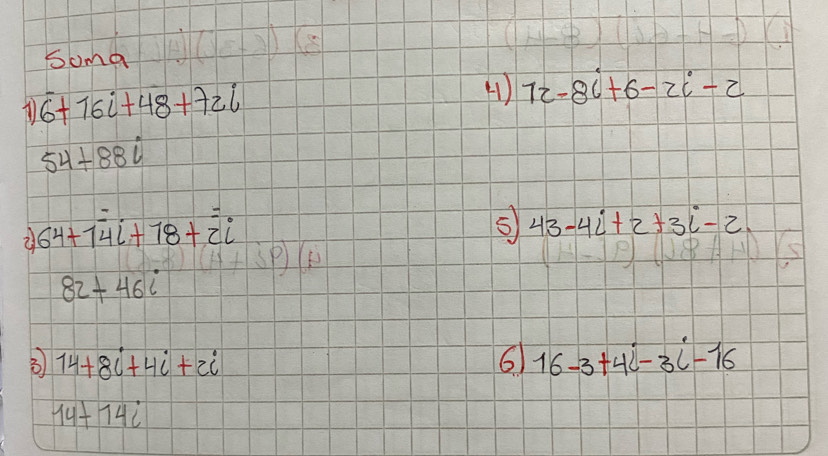 Suma
1) 6+16i+48+72i
54+88i
2) 64+14i+18+2i
82+46i
3) 14+8i+4i+2i
14+14i
4) 12-8i+6-2i-2
5) 43-4i+2+3i-2
6) 16-3+4i-3i-16